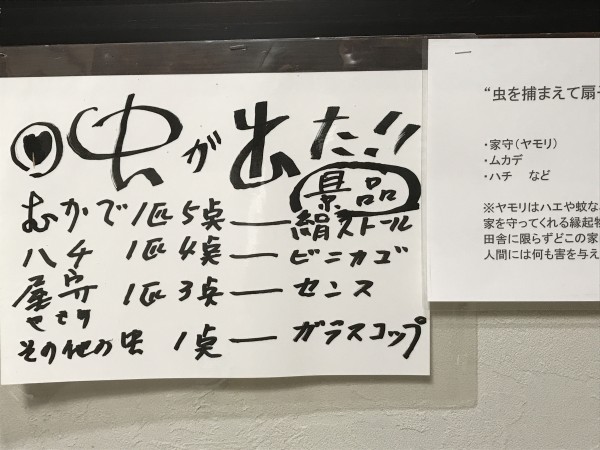 虫が出た!!
景品
むかで 1匹 5点 ― 絹ストール
ハチ 1匹 4点 ― ビニカゴ
屋守 1匹 3点 ― センス
やもり
その他の虫 1点 ― ガラスコップ
“虫を捕まえて扇子
・家守(ヤモリ)
・ムカデ
・ハチ など
※ヤモリはハエや蚊な
家を守ってくれる縁起物
田舎に限らずどこの家
人間には何も害を与え